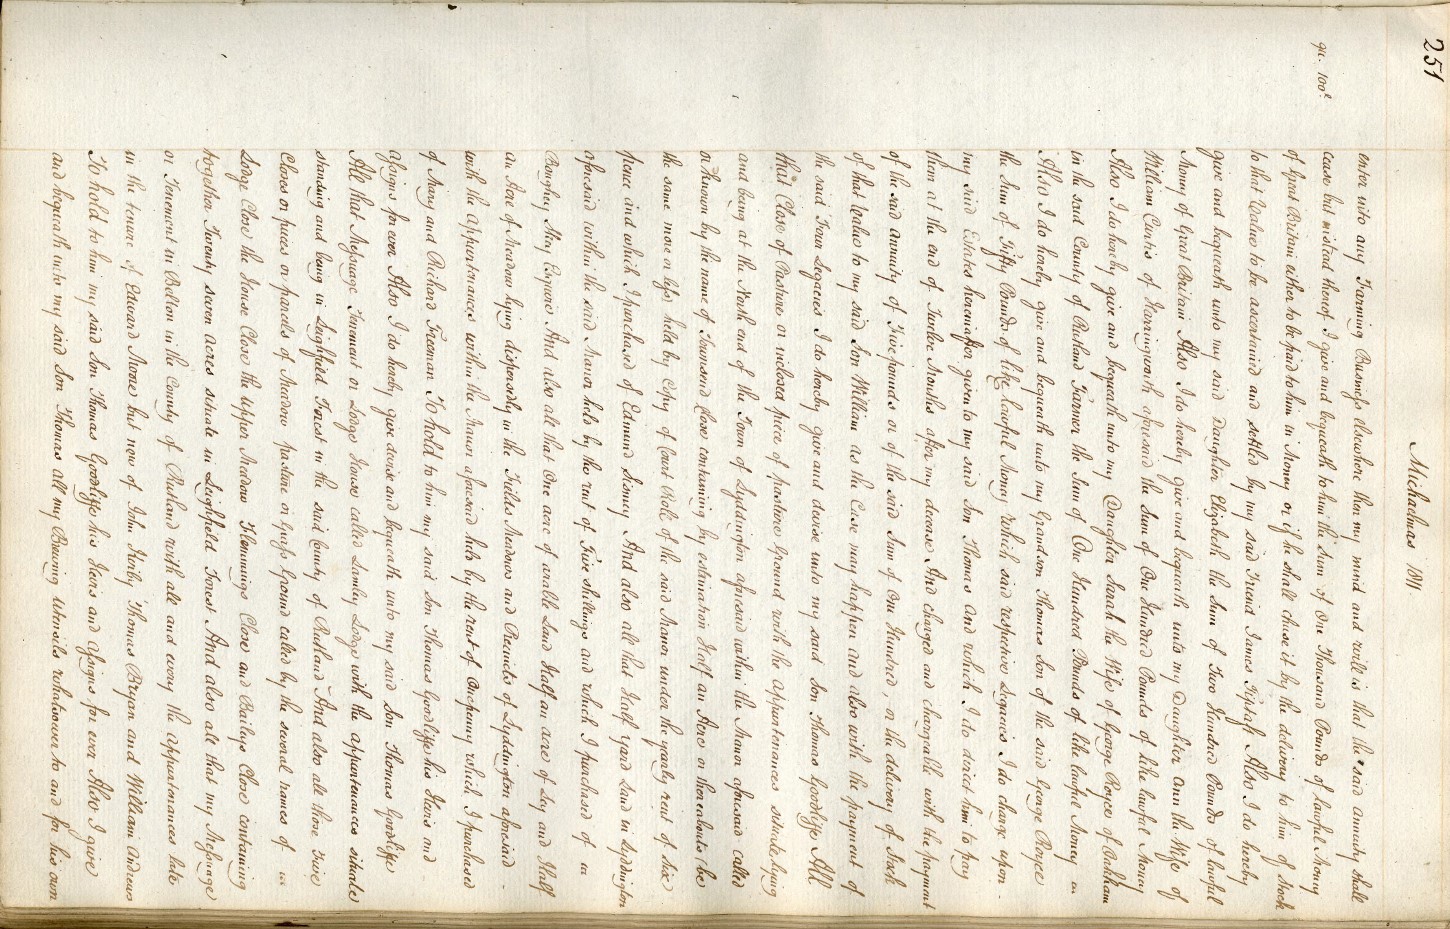 251
Michaelmas 1811.
qu. 100£
enter into any Tanning Business elsewhere then my mind and will is that the said annuity shall
cease but instead thereof I give and bequeath to him the Sum of One Thousand Pounds of lawful Money
of Great Britain either to be paid to him in Money or if he shall chuse it by the delivery to him of Stock
to that Value to be ascertained and settled by my said Friend James Tipsaft Also I do hereby
give and bequeath unto my said Daughter Elizabeth the Sum of Two Hundred Pounds of lawful
Money of Great Britain Also I do hereby give and bequeath unto my Daughter Ann the Wife of
William Curtis of Harringworth aforesaid the Sum of One Hundred Pounds of like lawful Money
Also I do hereby give and bequeath unto my Daughter Sarah the Wife of George Royce of Oakham
in the said County of Rutland Farmer the Sum of One Hundred Pounds of like lawful Money
Also I do hereby give and bequeath unto my Grandson Thomas Son of the said George Royce
the Sum of Fifty Pounds of like lawful Money which said respective Legacies I do charge upon
my said Estates hereinafter given to my said Son Thomas and which I do direct him to pay
them at the end of Twelve Months after my decease And charged and chargeable with the payment
of the said annuity of Five pounds or of the said Sum of One Hundred, or the delivery of Stock
of that Value to my said Son William as the Case may happen and also with the payment of
the said Four Legacies I do hereby give and devise unto my said Son Thomas Goodliffe All
that Close of Pasture or inclosed piece of pasture Ground with the appurtenances situate lying
and being at the North end of the Town of Lyddington aforesaid within the Manor aforesaid called
or known by the name of Townsend Close containing by estimation Half an Acre or thereabouts (be
the same more or less) held by Copy of Court Roll of the said Manor under the yearly rent of Six
pence and which I purchased of Edmund Sismey And also all that Half yard Land in Lyddington
aforesaid within the said Manor held by the rent of Five shillings and which I purchased of
Boughey Skey Esquire And also all that One acre of arable Land Half an acre of Ley and Half
an Acre of Meadow lying dispersedly in the Fields Meadows and Precincts of Lyddington aforesaid
with the Appurtenances within the Manor aforesaid held by the rent of One penny which I purchased
of Mary and Richard Freeman To hold to him my said Son Thomas Goodliffe his Heirs and
Assigns for ever Also I do hereby give devise and bequeath unto my said Son Thomas Goodliffe
All that Messuage Tenement or Lodge House called Lumley Lodge with the appurtenances situate
standing and being in Leighfield Forest in the said County of Rutland And also all those Five
Closes or pieces or parcels of Meadow pasture or Grass Ground called by the several names of
Lodge Close the House Close the Upper Meadow Hemmings Close and Baileys Close containing
together Twenty seven acres situate in Leighfield Forest And also all that my Messuage
or Tenement in Belton in the County of Rutland with all and every the appurtenances late
in the tenure of Edward Moore but now of John Kirby Thomas Bryan and William Andrews
To hold to him my said Son Thomas Goodliffe his Heirs and Assigns for ever Also I give
and bequeath unto my said Son Thomas all my Brewing Utensils whatsoever to and for his own